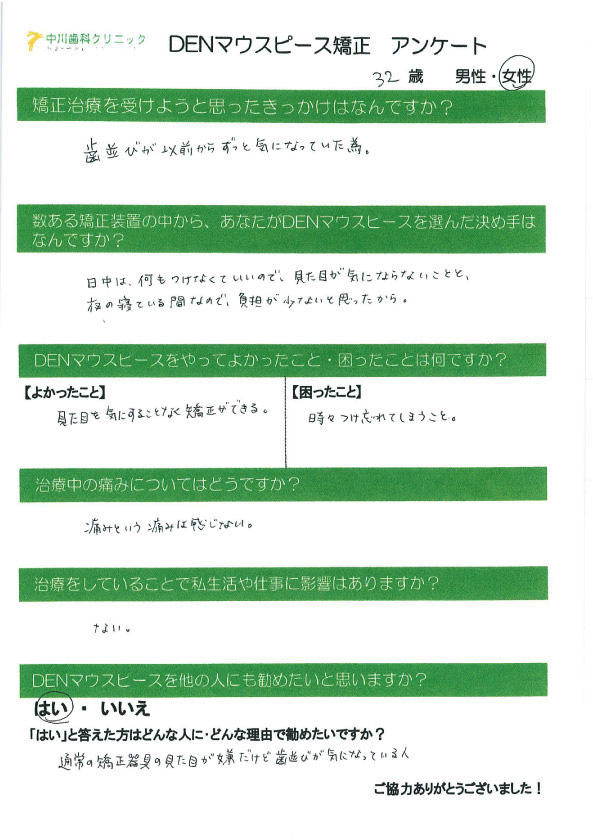 中川歯科クリニック
DENマウスピース矯正 アンケート
32 歳 男性・女性
矯正治療を受けようと思ったきっかけはなんですか？
歯並びが以前からずっと気になっていた為。
数ある矯正装置の中から、あなたがDENマウスピースを選んだ決め手は
なんですか？
日中は、何もつけなくていいので、見た目が気にならないことと、
夜の寝ている間なので、負担が少ないと思ったから。
DENマウスピースをやってよかったこと・困ったことは何ですか？
【よかったこと】
見た目を気にすることなく矯正ができる。
【困ったこと】
時々つけ忘れてしまうこと。
治療中の痛みについてはどうですか？
痛みという痛みは感じない。
治療をしていることで私生活や仕事に影響はありますか？
ない。
DENマウスピースを他の人にも勧めたいと思いますか？
はい・いいえ
「はい」と答えた方はどんな人に・どんな理由で勧めたいですか？
通常の矯正器具の見た目が嫌だけど歯並びが気になっている人
ご協力ありがとうございました！